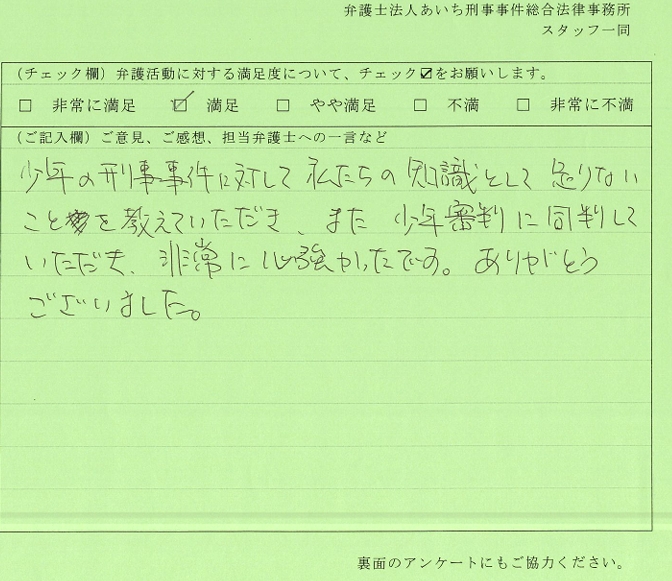 弁護士法人あいち刑事事件総合法律事務所
スタッフ一同
(チェック欄)弁護活動に対する満足度について、チェック☑をお願いします。
□ 非常に満足 ☑ 満足 □ やや満足 □ 不満 □ 非常に不満
(ご記入欄)ご意見、ご感想、担当弁護士への一言など
少年の刑事事件に対して私たちの知識として足りない
ことを教えていただき、また少年審判に同判して
いただき、非常に心強かったです。ありがとう
ございました。
裏面のアンケートにもご協力ください。